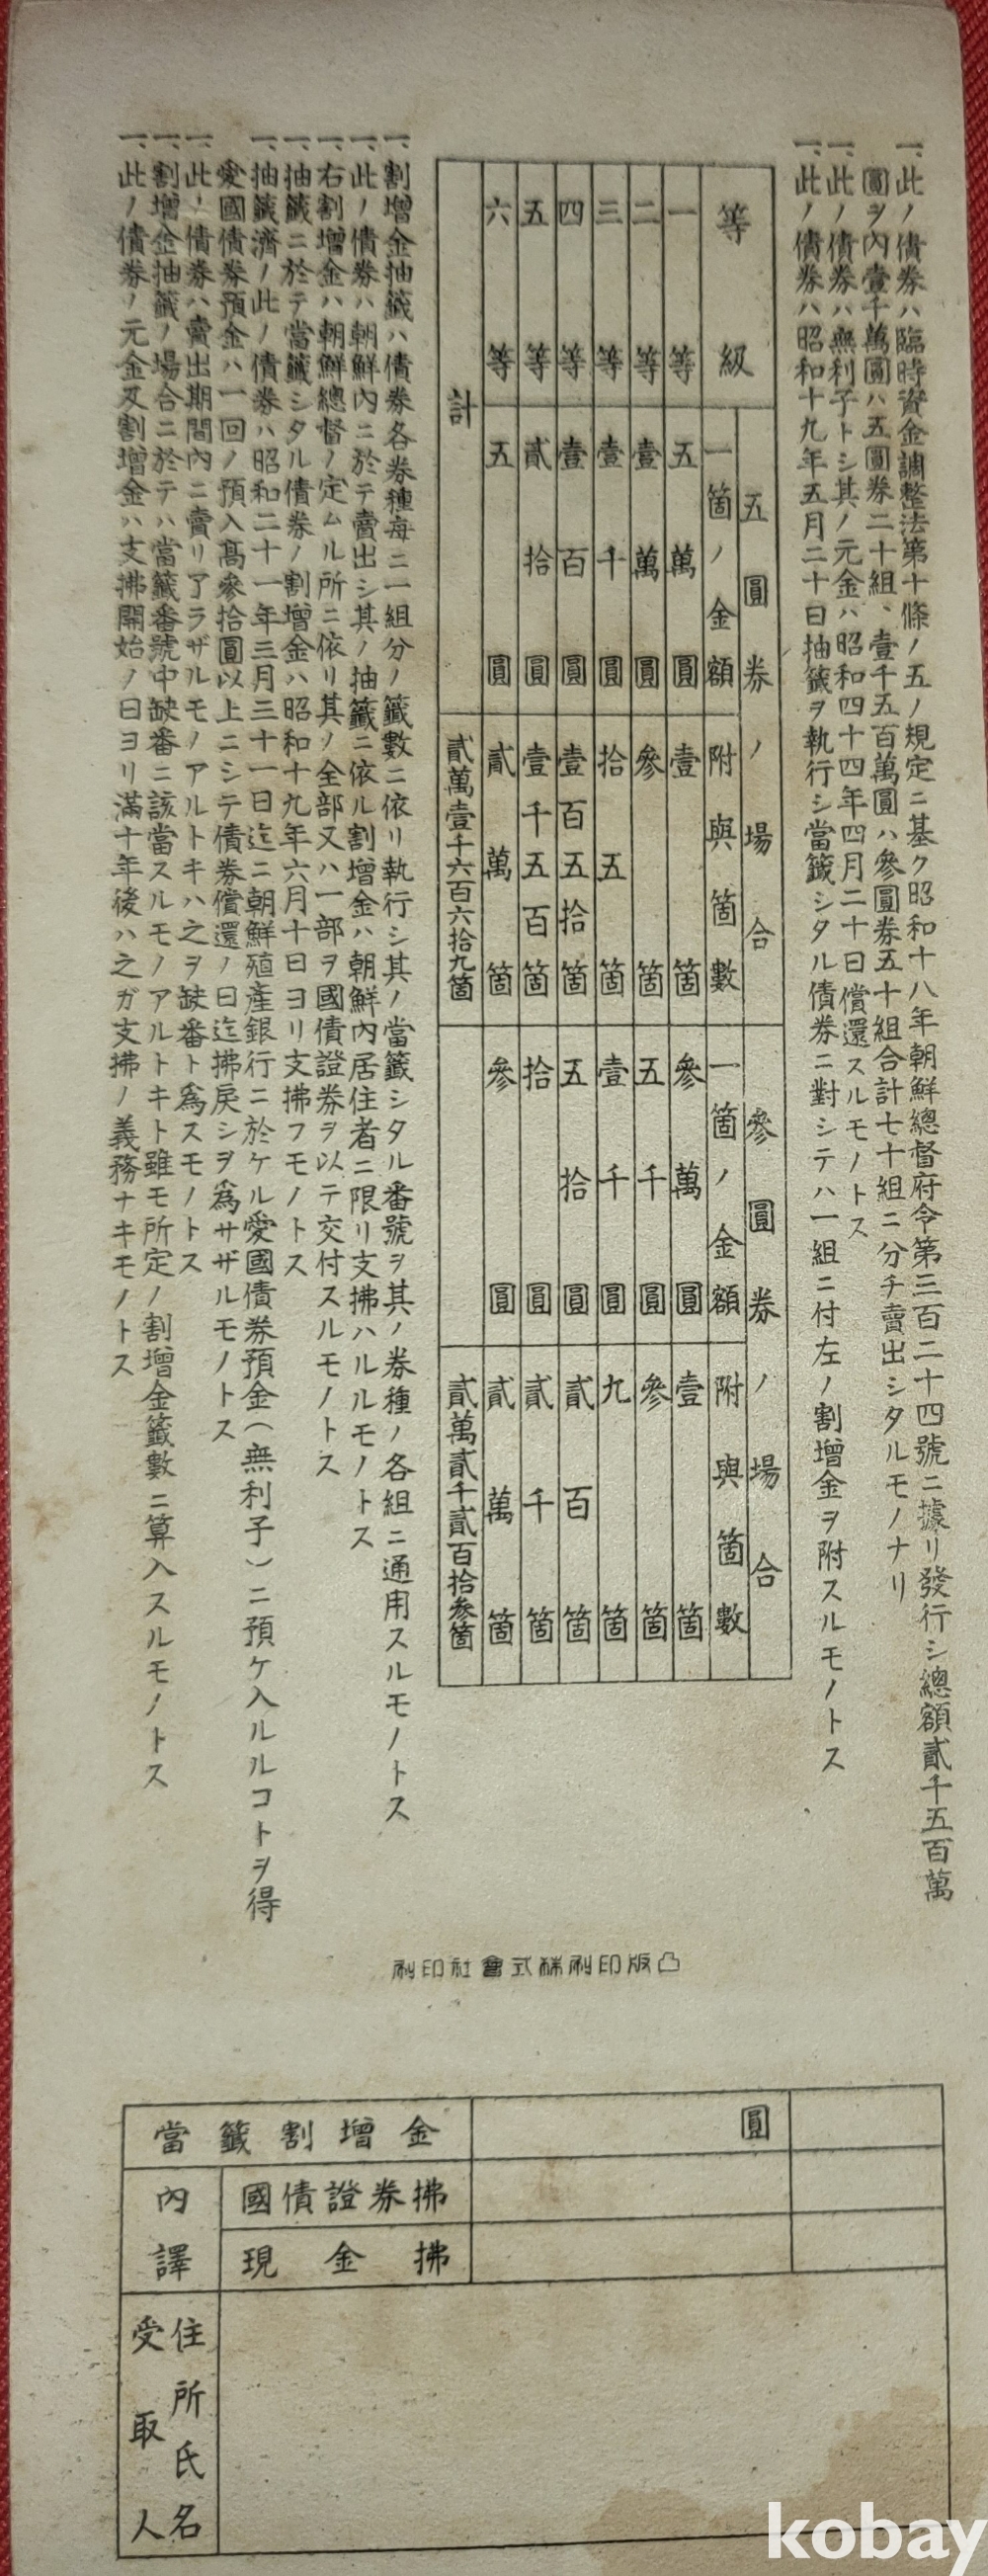 一、此ノ債券ハ臨時資金調整法第十條ノ五ノ規定ニ基ク昭和十八年朝鮮總督府令第三百二十四號ニ據リ發行シ總額貳千五百萬
圓ヲ內壹千萬圓ハ五圓券二十組、壹千五百萬圓ハ參圓券五十組合計七十組ニ分チ賣出シタルモノナリ
一、此ノ債券ハ無利子トシ其ノ元金ハ昭和四十四年四月二十日償還スルモノトス
一、此ノ債券ハ昭和十九年五月二十日抽籤ヲ執行シ當籤シタル債券ニ對シテハ一組ニ付左ノ割增金ヲ附スルモノトス
等級
五圓券ノ場合
參圓券ノ場合
一箇ノ金額 附與箇數 一箇ノ金額 附與箇數
一等 五萬圓 壹箇 參萬圓 壹箇
二等 壹萬圓 參箇 五千圓 參箇
三等 壹千圓 拾五箇 壹千圓 九箇
四等 壹百圓 壹百五拾箇 五拾圓 貳百箇
五等 貳拾圓 壹千五百箇 拾圓 貳千箇
六等 五圓 貳萬箇 參圓 貳萬箇
計 貳萬壹千六百六拾九箇 貳萬貳千貳百拾參箇
一、割增金抽籤ハ債券各券種每ニ一組分ノ籤數ニ依リ執行シ其ノ當籤シタル番號ヲ其ノ券種ノ各組ニ通用スルモノトス
一、此ノ債券ハ朝鮮內ニ於テ賣出シ其ノ抽籤ニ依ル割增金ハ朝鮮內居住者ニ限リ支拂ハルルモノトス
一、右割增金ハ朝鮮總督ノ定ムル所ニ依リ其ノ全部又ハ一部ヲ國債證券ヲ以テ交付スルモノトス
一、抽籤ニ於テ當籤シタル債券ノ割增金ハ昭和十九年六月十日ヨリ支拂フモノトス
一、抽籤濟ノ此ノ債券ハ昭和二十一年三月三十一日迄ニ朝鮮殖產銀行ニ於ケル愛國債券預金(無利子)ニ預ケ入ルルコトヲ得
愛國債券預金ハ一回ノ預入高參拾圓以上ニシテ債券償還ノ日迄拂戾シヲ爲サザルモノトス
一、此ノ債券ハ賣出期間內ニ賣リ了ラザルモノアルトキハ之ヲ缺番ト爲スモノトス
一、割增金抽籤ノ場合ニ於テハ當籤番號中缺番ニ該當スルモノアルトキト雖モ所定ノ割增金籤數ニ算入スルモノトス
一、此ノ債券ノ元金及割增金ハ支拂開始ノ日ヨリ滿十年後ハ之ガ支拂ノ義務ナキモノトス
刷印社會式株刷印版凸
當籤割增金 圓
內譯
國債證券拂
現金拂
受取人
住所氏名
kobay